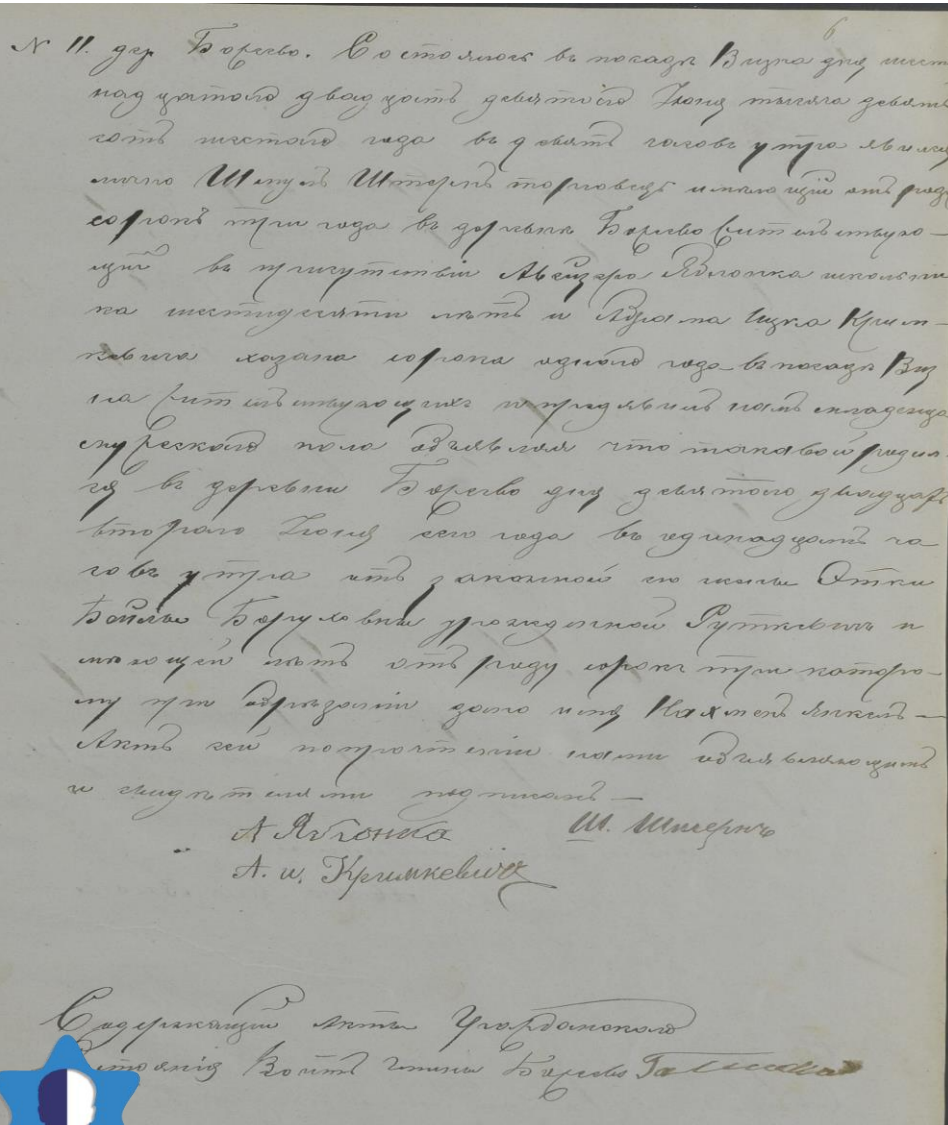 N 11. дер. Боржво. Состоялось въ посадѣ Визна дня шест
надцатого двадцать девятого Іюня тысяча девять
сотъ шестого года въ девять часовъ утра явился
лично Шмуль Штернъ торговецъ имѣющій отъ роду
сорокъ три года въ деревнѣ Боржво жительствую-
щій въ присутствіи Абейзера Яблонка школьни
ка шестидесяти лѣтъ и Абрама Ицка Крим-
кевича хозана сорока одного года въ посадѣ Виз
на жительствующихъ и предъявилъ намъ младенца
мужескаго пола объявляя что таковой родил-
ся въ деревни Боржво дня девятого двадцать
второго Іюня сего года въ одинадцать ча
совъ утра отъ законной его жены Этки
Бейлы Боруховны урожденной Руткевичъ и
мѣющей лѣтъ отъ роду сорокъ три которо-
му при обрѣзаніи дано имя Нахменъ Янкель -
Актъ сей по прочтеніи нами объявляющимъ
и свидѣтелями подписанъ -
А Яблонка Ш. Штернъ
А. И. Кримкевичъ
Содержащій Акты Гражданского
Состоянія Войтъ Гмины Боржво